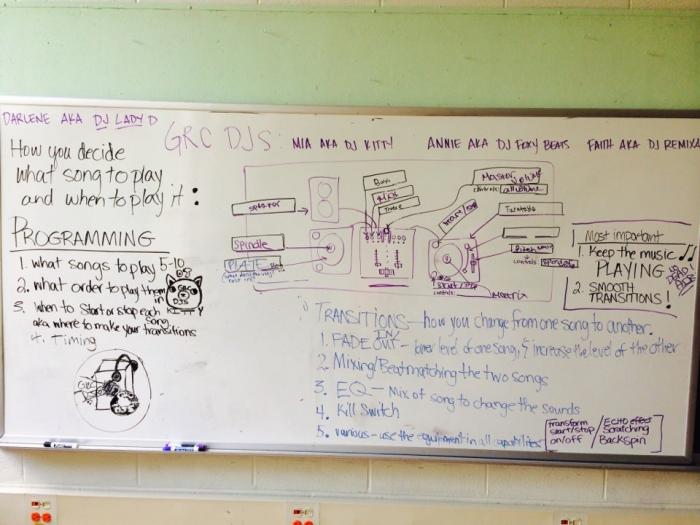 DARLENE AKA DJ LADY D
GRC DJS
MIA AKA DJ KITTY
ANNIE AKA DJ FOXY BEATS
FAITH AKA DJ REMIXX
How you decide
what song to play
and when to play it:
PROGRAMMING
1. what songs to play 5-10
2. what order to play them in
3. when to start or stop each song
aka where to make your transitions
4. Timing
GRC
DJS
KITTY
GRC
Speaker
Spindle
PLATE
Bass
Treble
Master Volume
controls:
Start/Stop
Turntable
Pitch
controls
Most important
1. Keep the music
PLAYING
NO DEAD AIR
2. SMOOTH
TRANSITIONS!
TRANSITIONS - how you change from one song to another.
1. FADE IN/OUT - lower level of one song, & increase the level of the other
2. Mixing/Beatmatching the two songs
3. EQ - Mix of song to change the sounds
4. Kill Switch
5. various - use the equipment in all capabilities
transform
start/stop
on/off
ECHO effect
Scratching
Backspin